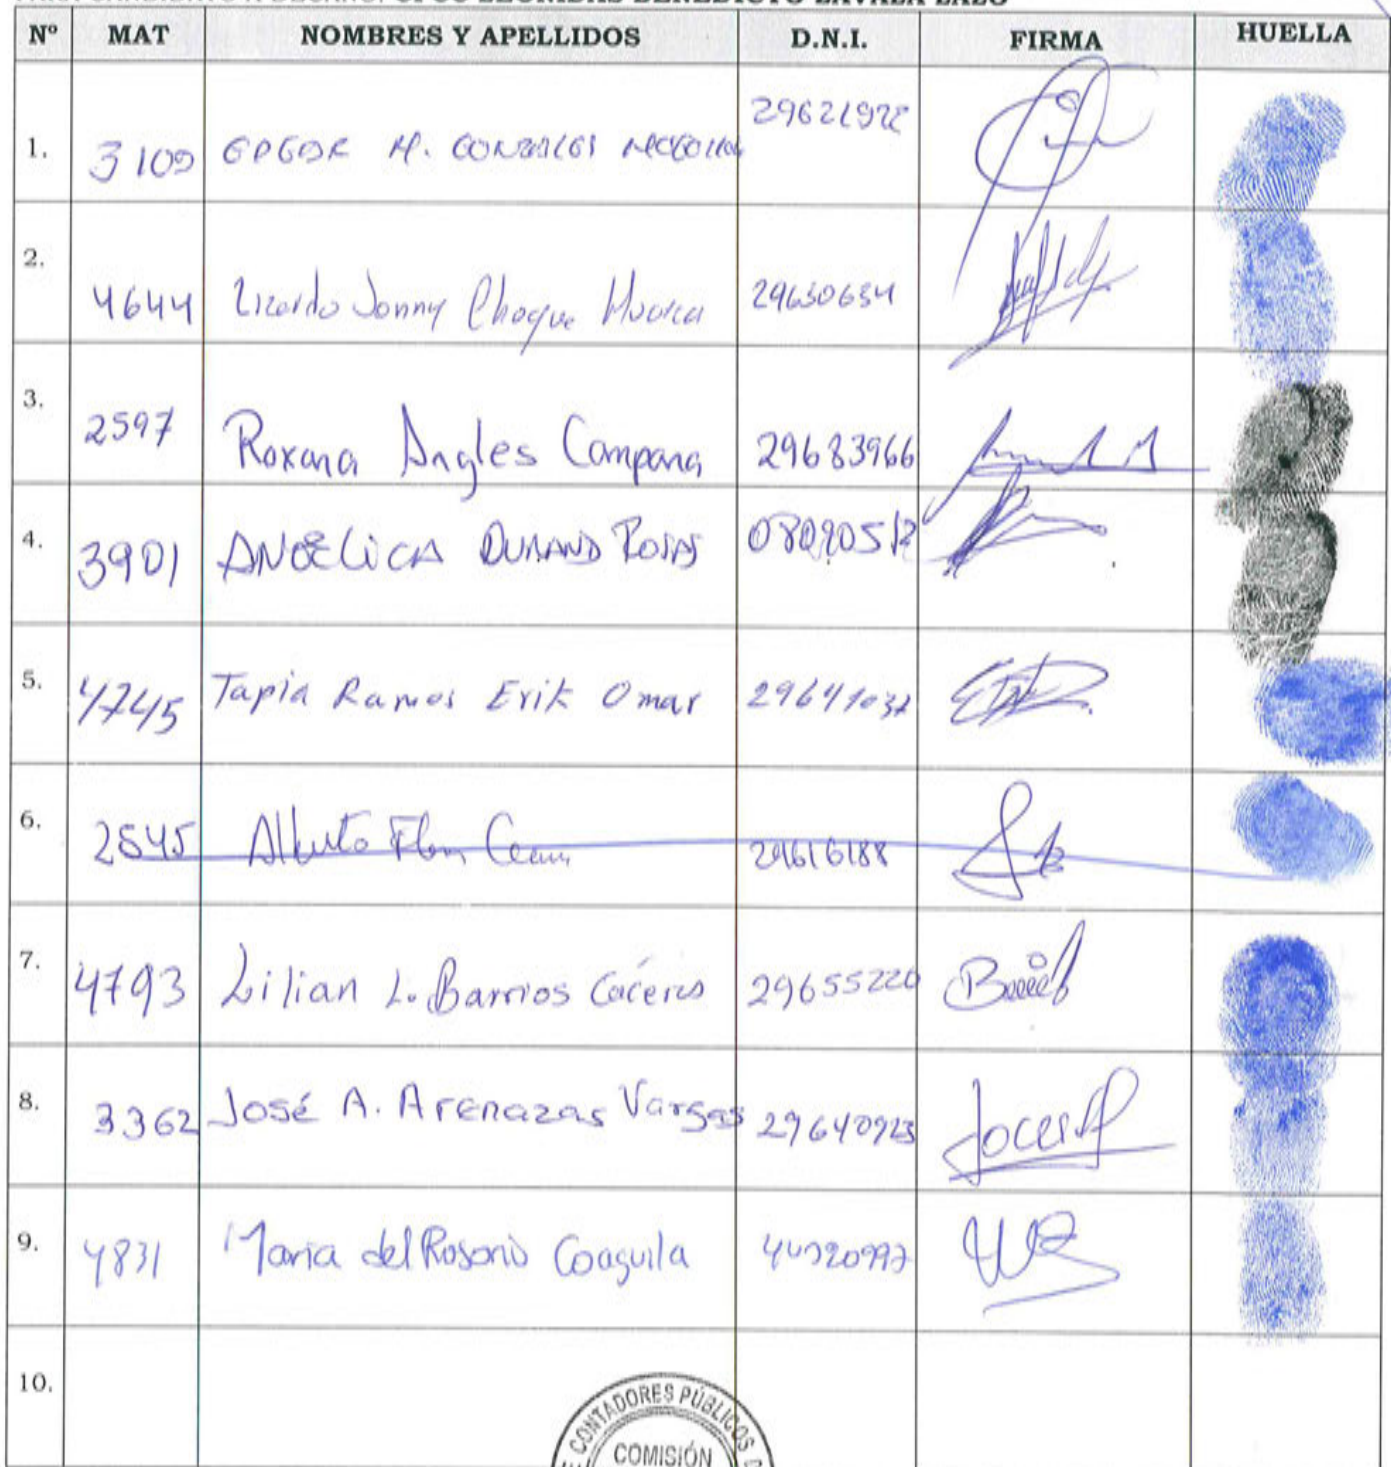 CPCC LEONIDAS BENEDICTO ZAVALA LAZO
Nº MAT NOMBRES Y APELLIDOS D.N.I. FIRMA HUELLA
1. 3109 EDGAR M. GONZALES 29621972
2. 4644 Lizardo Jonny Choque Huarca 29630634
3. 2597 Roxana Angles Campana 29683966
4. 3901 ANGÉLICA DURAND ROSAS
5. 4745 Tapia Ramos Erik Omar 29641037
6. 2545 Alberto 29616188
7. 4793 Lilian L. Barrios Cáceres 29655220
8. 3362 José A. Arenazas Vargas 29640923
9. 4831 Maria del Rosario Coaguila
10.
CONTADORES PÚBLICOS
COMISIÓN